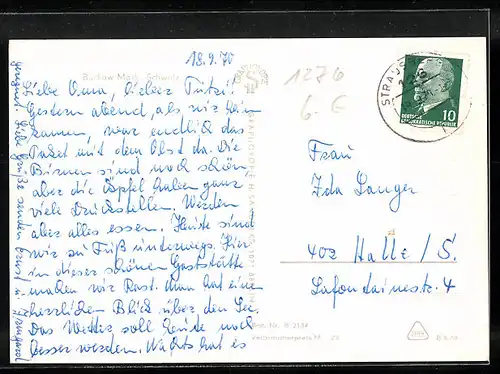 18.9.70
Buckow-Märk. Schweiz
Liebe Oma, lieber
Gestern abend, als wir heim
kamen, war endlich das
Paket mit dem Obst da. Die
Birnen sind noch schön,
aber die Äpfel haben ganz
viele Druckstellen. Werden
aber alles essen. Heute sind
wir zu Fuß unterwegs. Hier
in dieser schönen Gaststätte
machen wir Rast. Man hat einen
herrlichen Blick über den See.
Das Wetter soll heute noch
besser werden. Nachts hat es
Liebe Grüße senden
1276
6.€
STRAUS
DEUTSCHE
DEMOKRATISCHE REPUBLIK
10
Frau
Ida Langer
402 Halle/S.
Lafontainestr. 4
Best. Nr.
Verbraucherpreis M